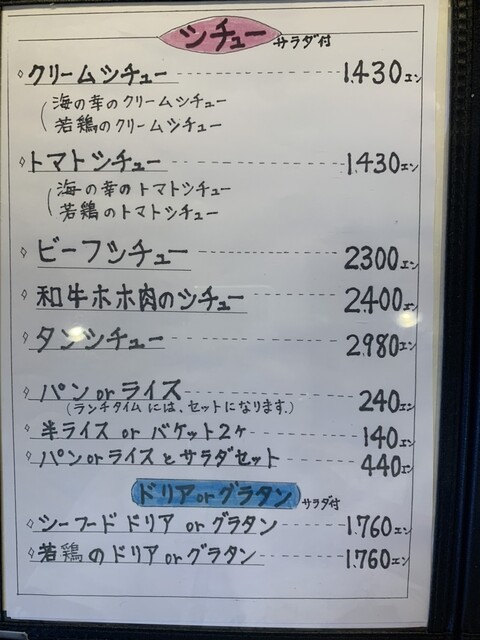 シチュー サラダ付
◇クリームシチュー 1.430エン
海の幸のクリームシチュー
若鶏のクリームシチュー
◇トマトシチュー 1.430エン
海の幸のトマトシチュー
若鶏のトマトシチュー
◇ビーフシチュー 2300エン
◇和牛ホホ肉のシチュー 2.400エン
◇タンシチュー 2.980エン
◇パンorライス 240エン
(ランチタイムには、セットになります。)
◇半ライス or バケット2ヶ 140エン
◇パンorライスとサラダセット 440エン
ドリアorグラタン サラダ付
◇シーフードドリア orグラタン 1.760エン
◇若鶏のドリアorグラタン 1.760エン